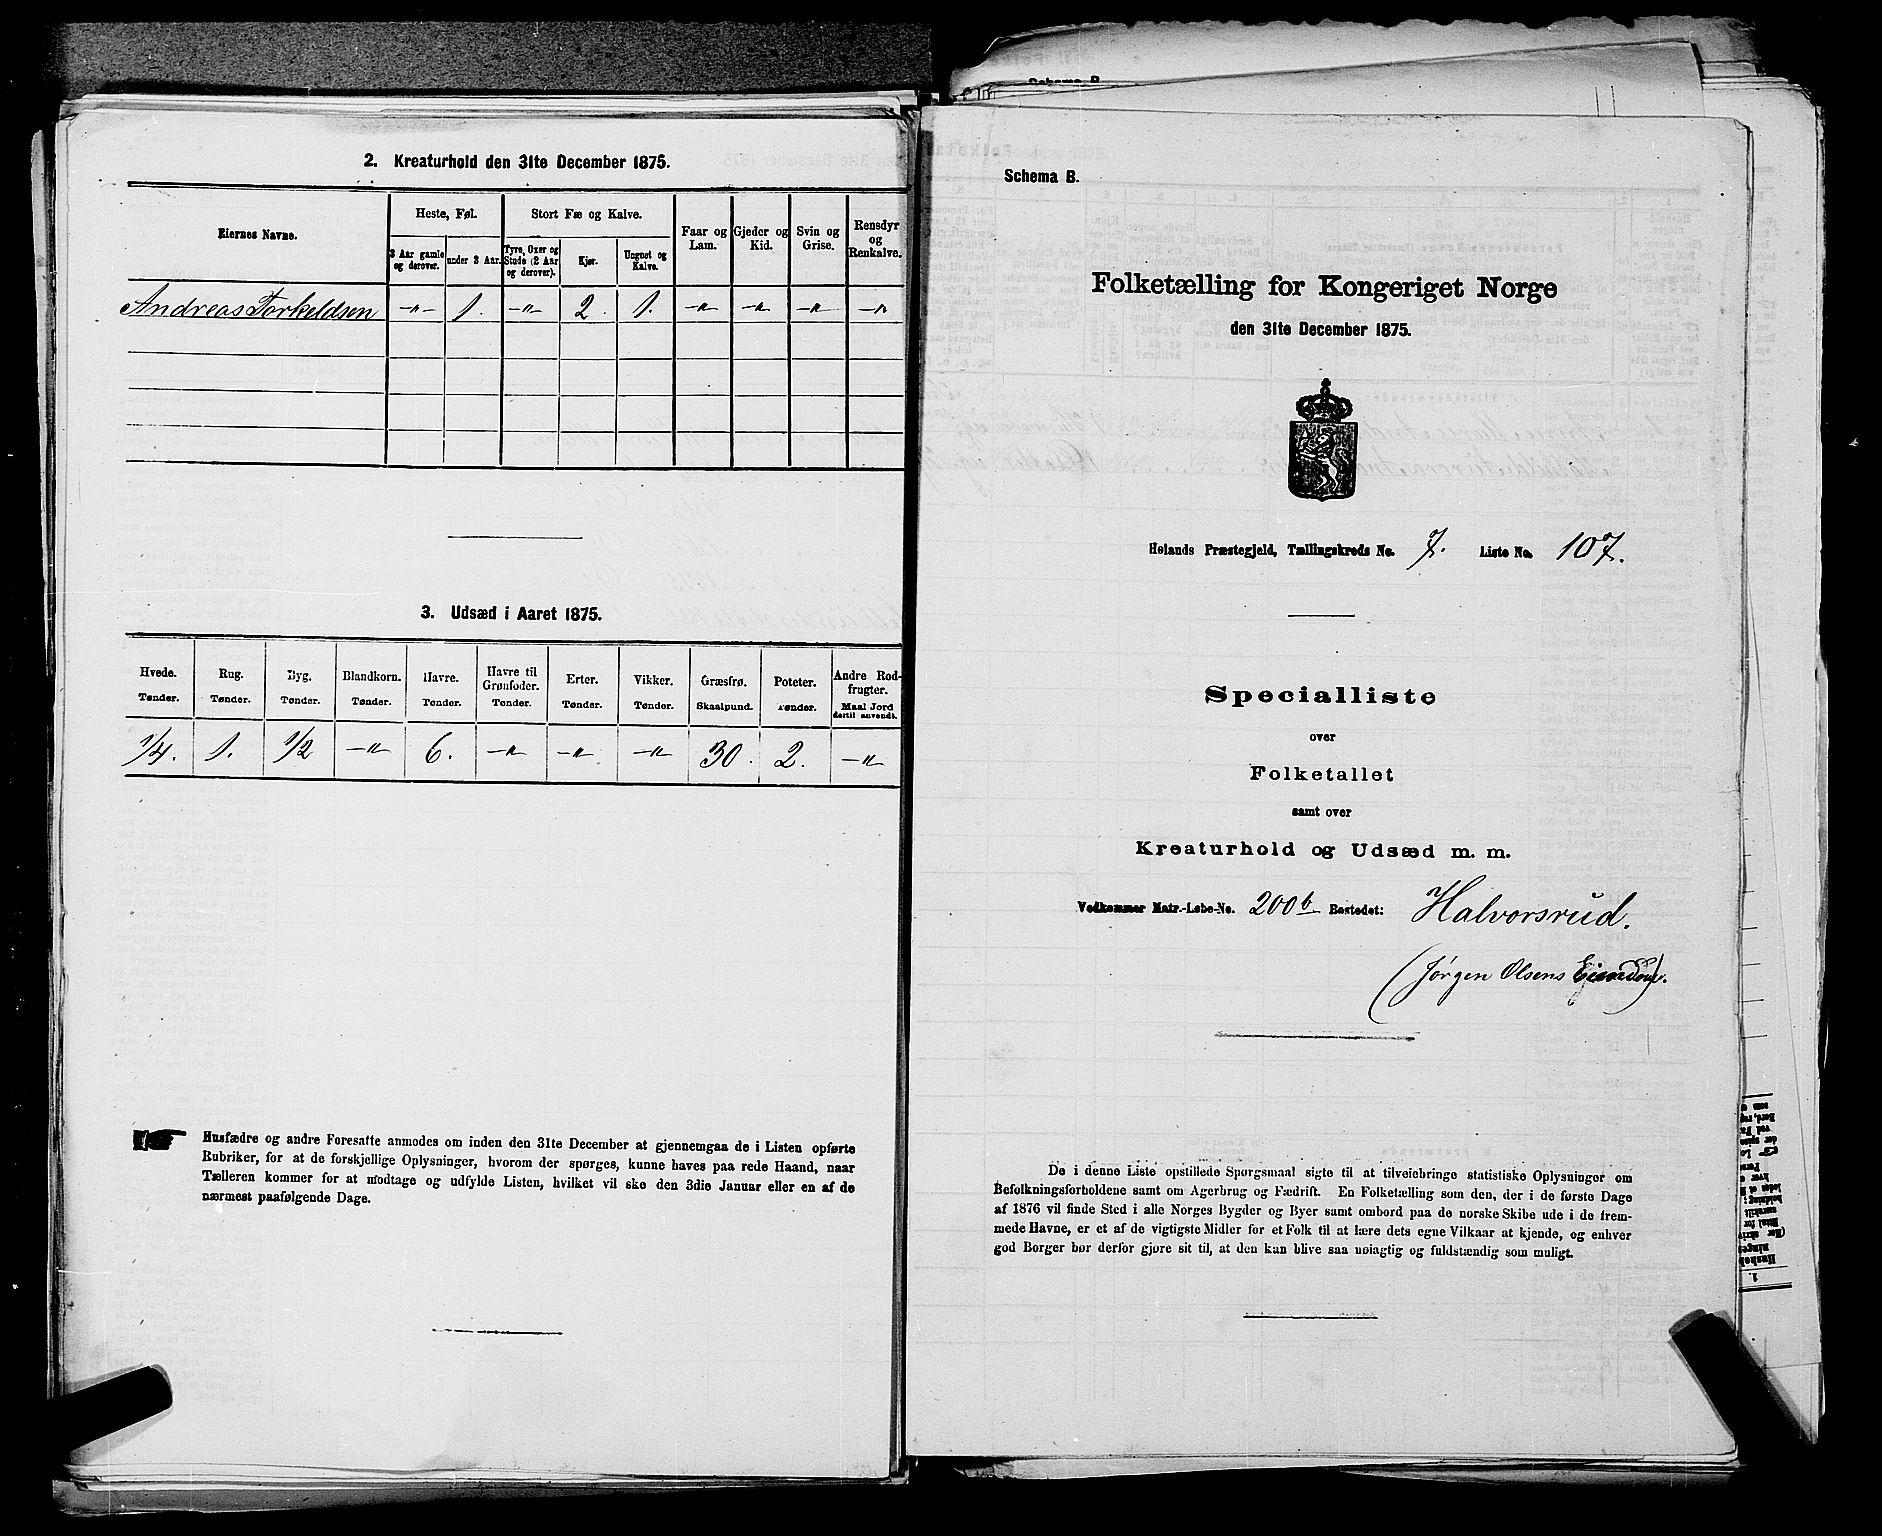 2. Kreaturhold den 31te December 1875.
Eiernes Navne.
Heste, Føl.
Stort Fæ og Kalve.
Faar og Lam.
Gjeder og Kid.
Svin og Grise.
Rensdyr og Renkalve.
3 Aar gamle og derover.
under 3 Aar.
Tyre, Oxer og Stude (2 Aar og derover).
Kjør.
Ungnøt og Kalve.
Andreas Torkeldsen -"- 1. -"- 2. 1. -"- -"- -"- -"-
3. Udsæd i Aaret 1875.
Hvede. Rug. Byg. Blandkorn. Havre. Havre til Grønfoder. Erter. Vikker. Græsfrø. Poteter. Andre Rodfrugter.
Tønder. Tønder. Tønder. Tønder. Tønder. Tønder. Tønder. Tønder. Skaalpund. Tønder. Maal Jord dertil anvendt.
1/4. 1. 1/2 -"- 6. -"- -"- -"- 30. 2. -"-
Husfædre og andre Foresatte anmodes om inden den 31te December at gjennemgaa de i Listen opførte
Rubriker, for at de forskjellige Oplysninger, hvorom der spørges, kunne haves paa rede Haand, naar
Tælleren kommer for at modtage og udfylde Listen, hvilket vil ske den 3die Januar eller en af de
nærmest paafølgende Dage.
Schema B.
Folketælling for Kongeriget Norge
den 31te December 1875.
Hølands Præstegjeld, Tællingskreds No. 7. Liste No. 107.
Specialliste
over
Folketallet
samt over
Kreaturhold og Udsæd m. m.
Vedkommer Matr.-Løbe-No. 200b Bostedet: Halvorsrud.
(Jørgen Olsens Eiendom).
De i denne Liste opstillede Spørgsmaal sigte til at tilveiebringe statistiske Oplysninger om
Befolkningsforholdene samt om Agerbrug og Fædrift. En Folketælling som den, der i de første Dage
af 1876 vil finde Sted i alle Norges Bygder og Byer samt ombord paa de norske Skibe ude i de frem-
mede Havne, er et af de vigtigste Midler for et Folk til at lære dets egne Vilkaar at kjende, og enhver
god Borger bør derfor gjøre sit til, at den kan blive saa nøiagtig og fuldstændig som muligt.